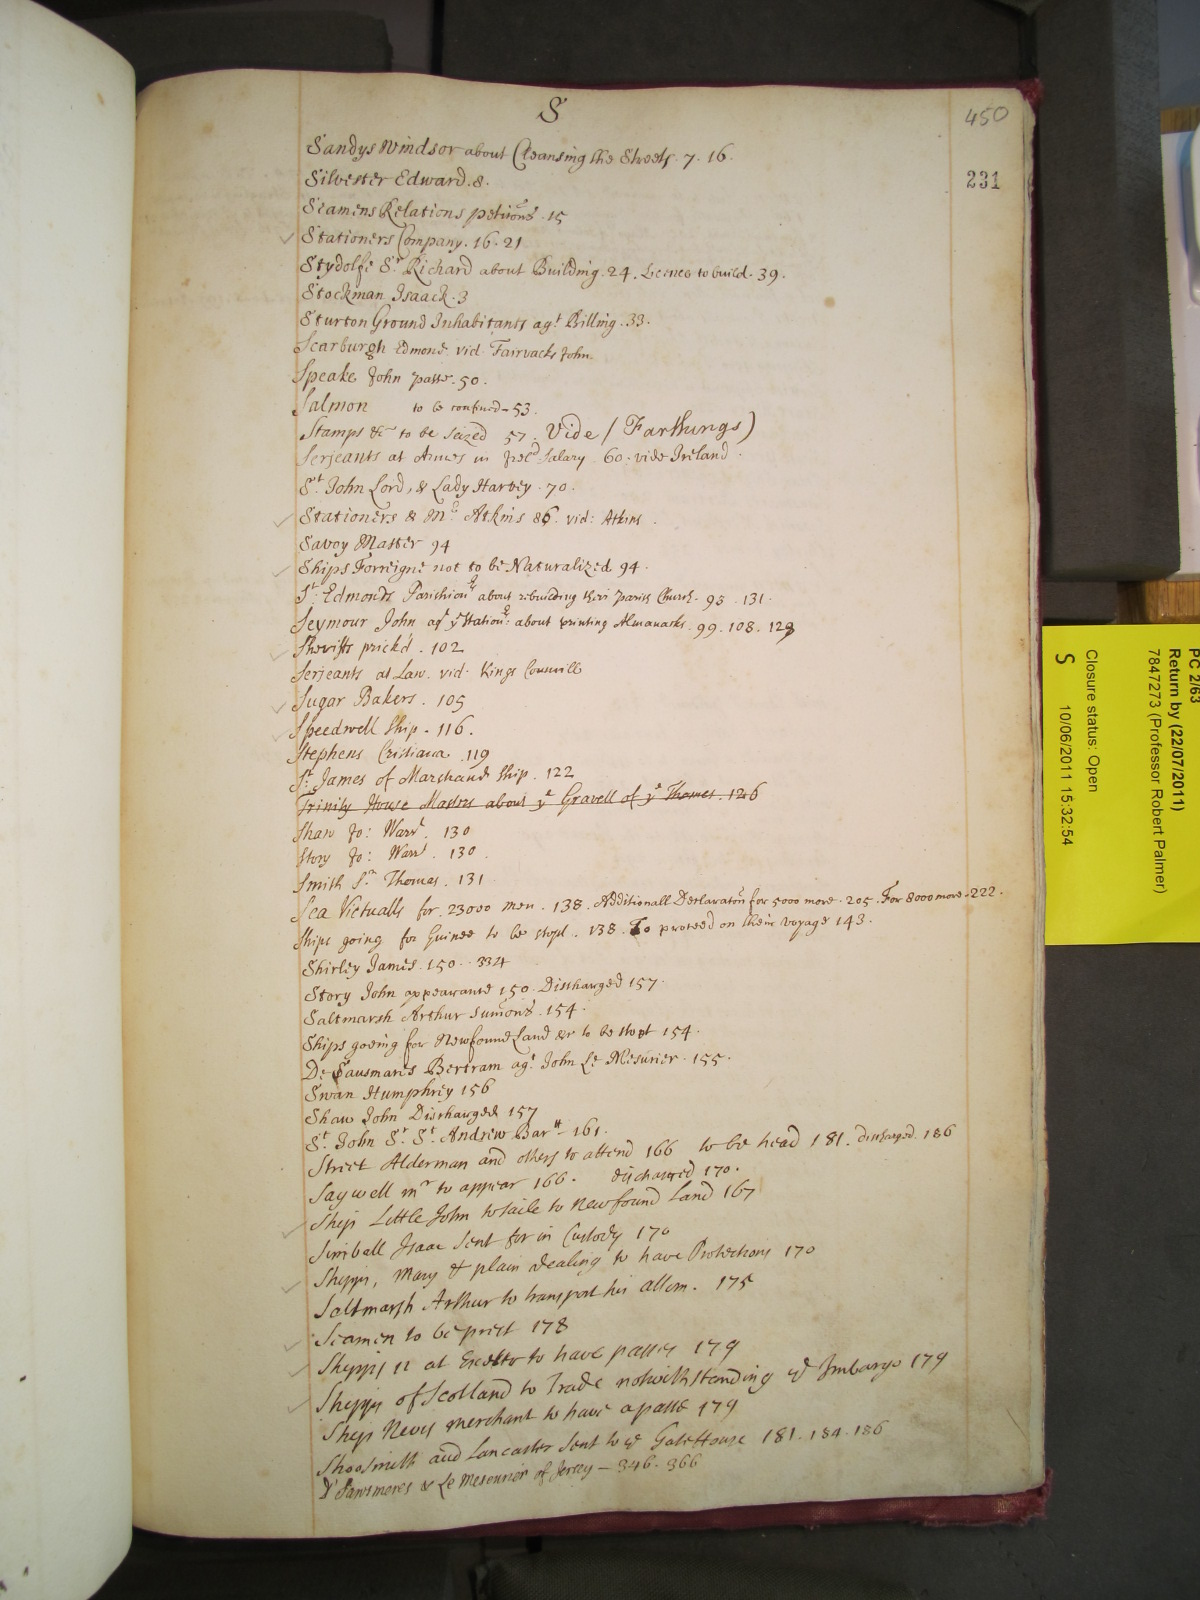 S
450
231
Sandys Windsor about Cleansing the Streets. 7. 16.
Silvester Edward. 8.
Seamens Relations petitions. 15
Stationers Company. 16. 21
Stydolfe Sr Richard about Building. 24. Licence to build. 39.
Stockman Isaack. 3
Sturton Ground Inhabitants agt Billing. 33.
Scarburgh Edmond vid. Fairvacks John.
Speake John passe. 50.
Salmon to be confined - 53.
Stamps &c to be seized 57. Vide (Farthings)
Serjeants at Armes in Irel.d Salary 60. vide Ireland.
St. John Lord, & Lady Harvey. 70.
Stationers & Mr. Atkins 86. vid: Atkins.
Savoy Master 94
Ships Forreigne not to be Naturalized 94.
St. Edmonds Parishionrs about rebuilding their Parish Church. 95. 131.
Seymour John agt ye Stationrs: about printing Almanacks. 99. 108. 129
Sheriffs prick'd. 102
Serjeants at Law. vid. Kings Councill
Sugar Bakers. 105
Speedwell Ship. 116.
Stephens Cristiana. 119
St. James of Marchand Ship. 122
Trinity House Masters about ye Gravell of ye Thames. 126
Shaw Jo: Warrt. 130
Story Jo: Warrt. 130.
Smith Sr. Thomas. 131
Sea Victualls for 23000 men. 138. Additionall Declaration for 5000 more. 205. For 8000 more. 222.
Ships going for Guinee to be stopt. 138. To proceed on their voyage 143.
Shirley James. 150. 334
Story John appearance 150. Discharged 157.
Saltmarsh Arthur sumons. 154.
Ships goeing for Newfound Land &c to be stopt 154.
De Sausmares Bertram agt John Le Mesurier. 155.
Swan Humphrey 156
Shaw John Discharged 157
St. John Sr. St. Andrew Bartt 161.
Street Alderman and others to attend 166 to be head 181. discharged. 186
Saywell mr to appear 166. discharged 170.
Ship Little John to saile to Newfound Land 167
Simball Isaac Sent for in Custody 170
Shipps, Mary & plain dealing to have Protections 170
Saltmarsh Arthur to transport his allom. 175
Seamen to be prest 178
Shipps 11 at to have passes 179
Shipps of Scotland to Trade notwithstanding ye Imbargo 179
Ship merchant to have a passe 179
Shoosmith and Lancaster Sent to ye GateHouse 181. 184. 186
D'Sawsmeres & Le Mesourier of Jersey - 346. 366
PC 2/63
Return by (22/07/2011)
7847273 (Professor Robert Palmer)
Closure status: Open
S 10/06/2011 15:32:54